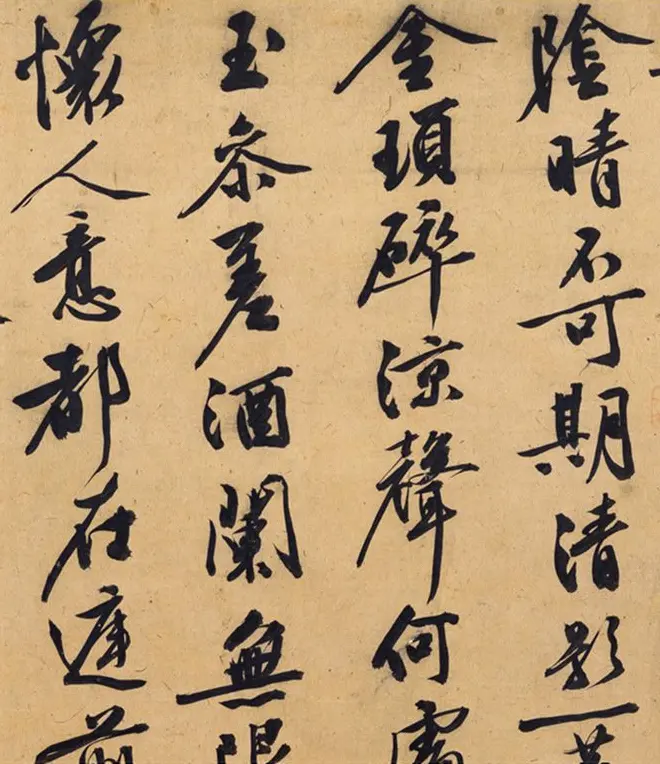 陰晴不可期清影一
金瑣碎涼聲何處
玉參差酒闌無限
懷人意都在庭前